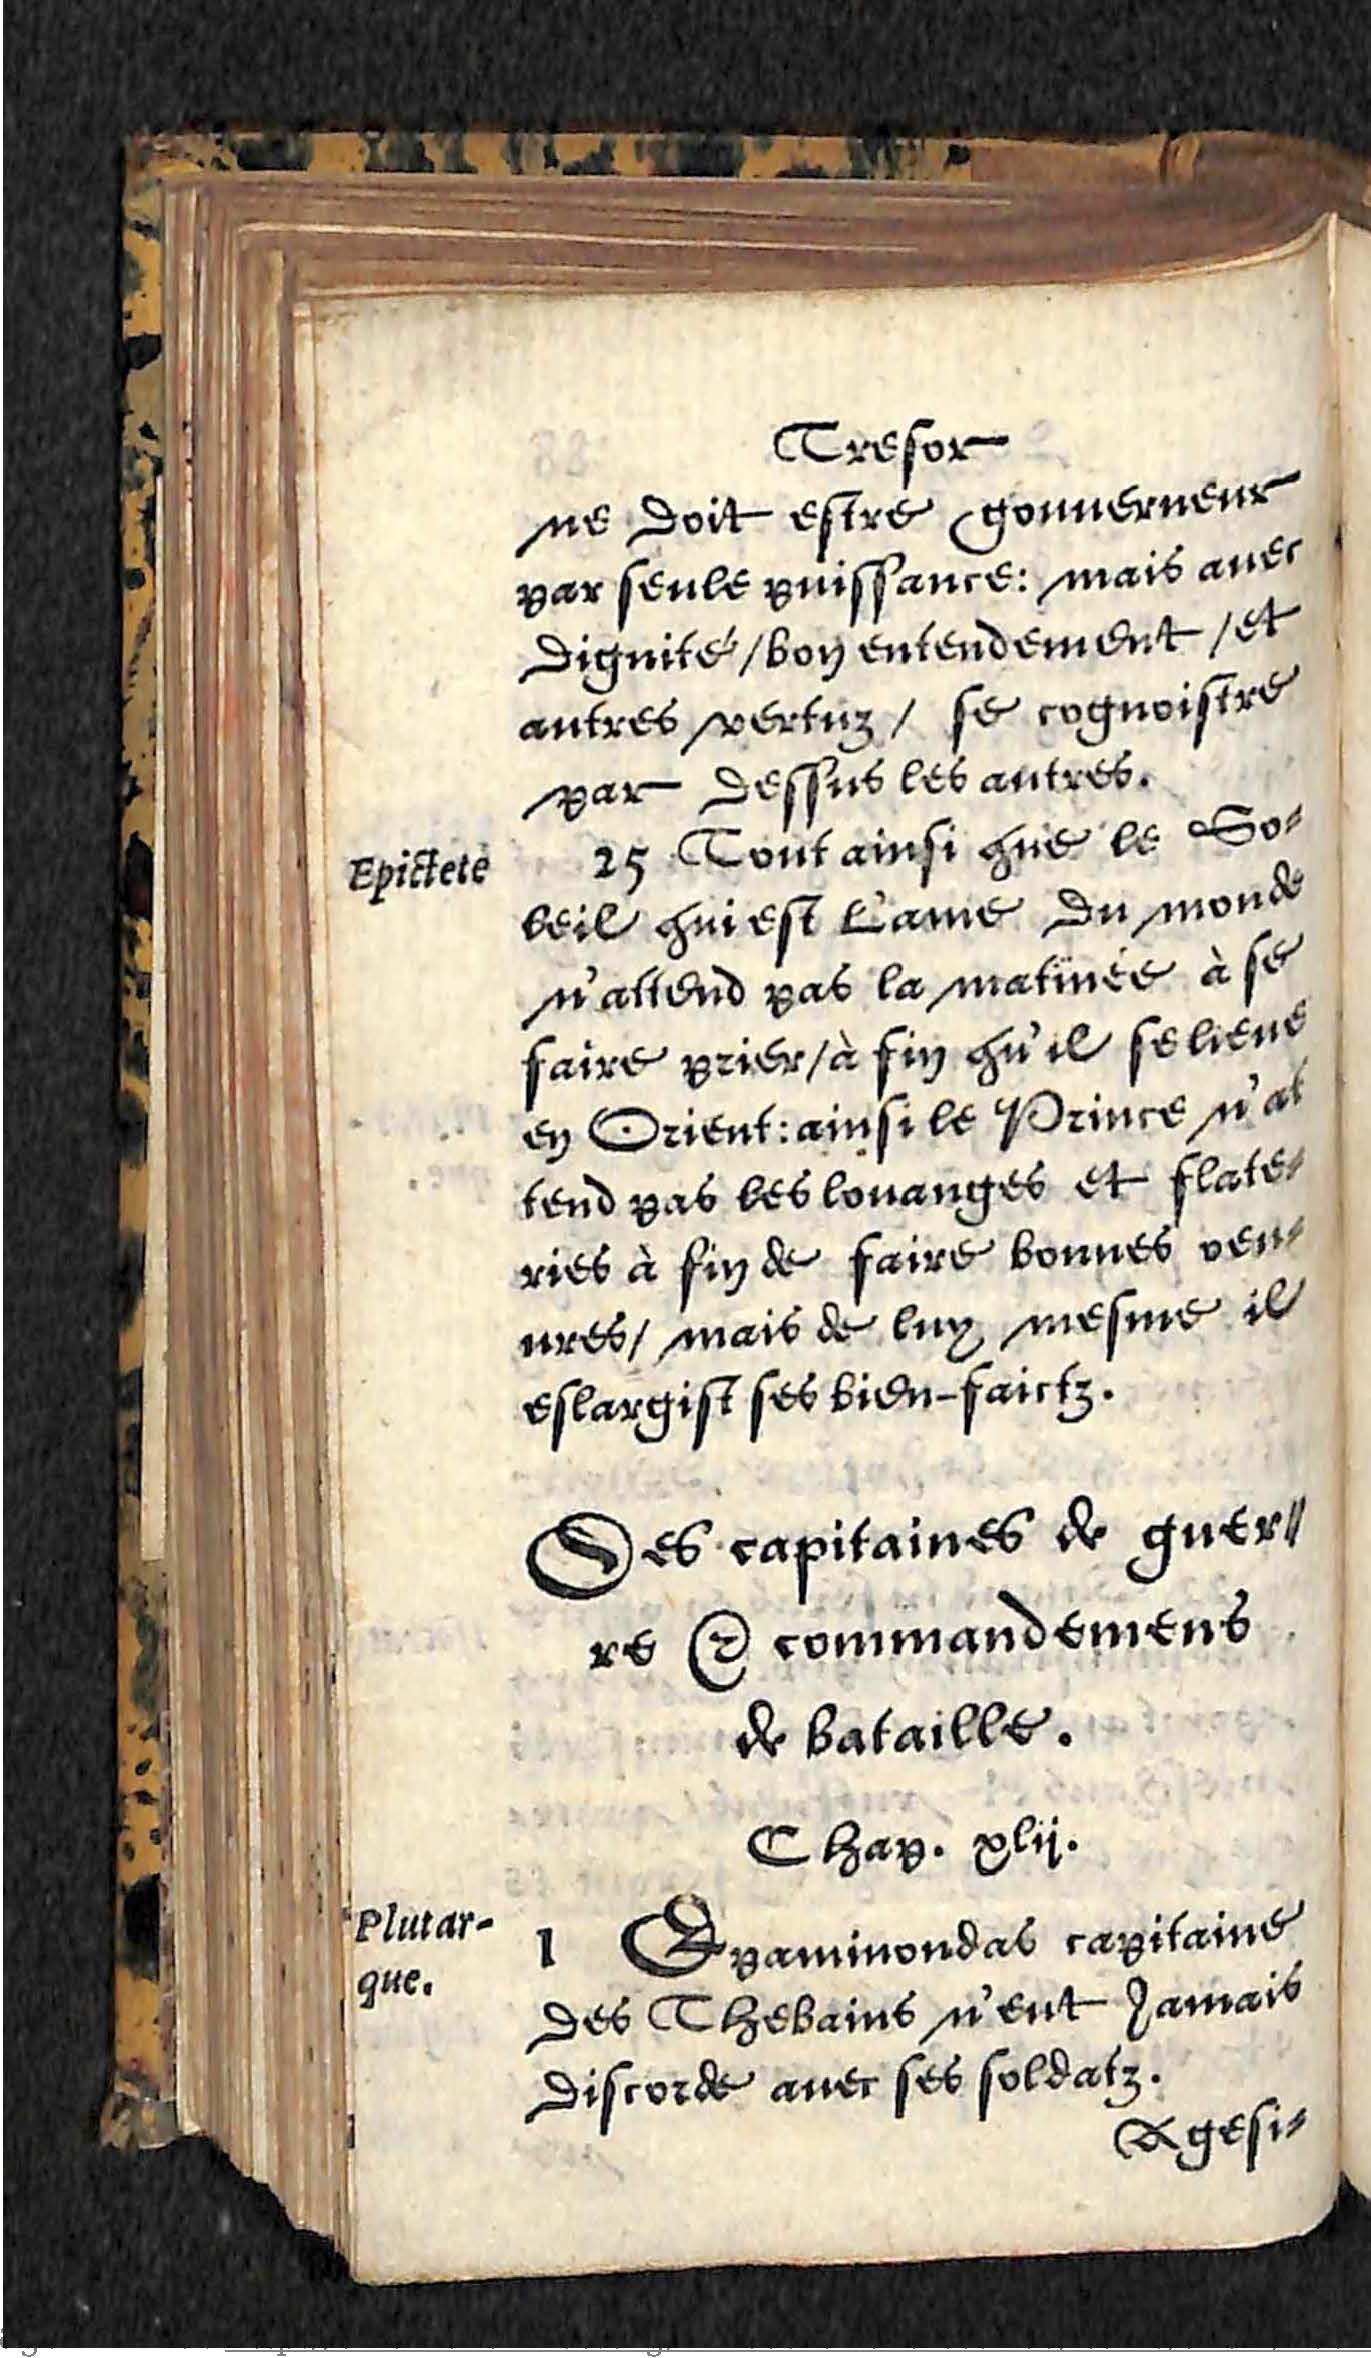 Tresor
ne doit estre gouuerneur
par seule puissance: mais auec
dignité / bon entendement / et
autres vertuz / se cognoistre
par dessus les autres.
Epictete
25 Tout ainsi que le So-
leil qui est l'ame du monde
n'attend pas la matinée à se
faire prier / à fin qu'il se lieue
en Orient: ainsi le Prince n'at
tend pas les louanges et flate-
ries à fin de faire bonnes oeu-
ures / mais de luy mesme il
eslargist ses bien-faictz.
Des capitaines de guer-
re & commandemens
de bataille.
Chap. xlij.
Plutar-
que.
1 Epaminondas capitaine
des Thebains n'eut Jamais
discorde auec ses soldatz.
Agesi-